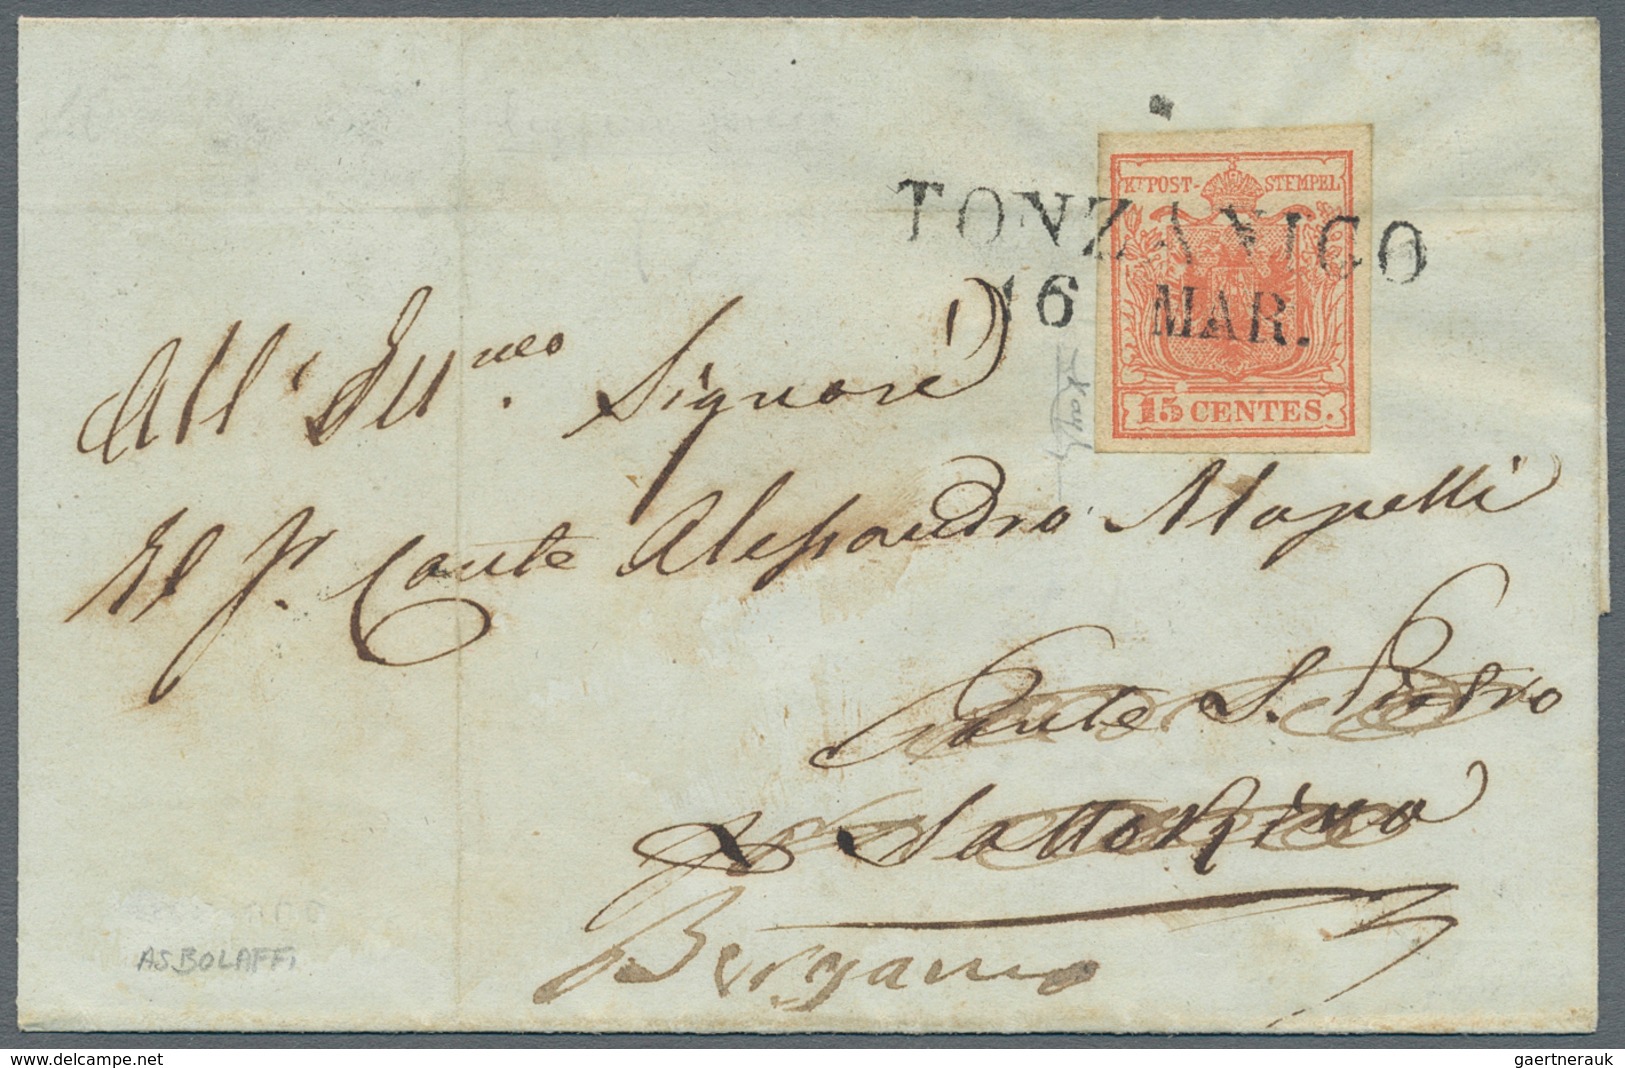 KK POST-STEMPEL
TONZANICO
16 MAR.
15 CENTES.
All' Illmo. Signore
Il Sr. Conte Alessandro Mapelli
Ponte S. Pietro
Sottoriva
Bergamo
ASBOLAFFI
delcampe.net
gaertnerauk